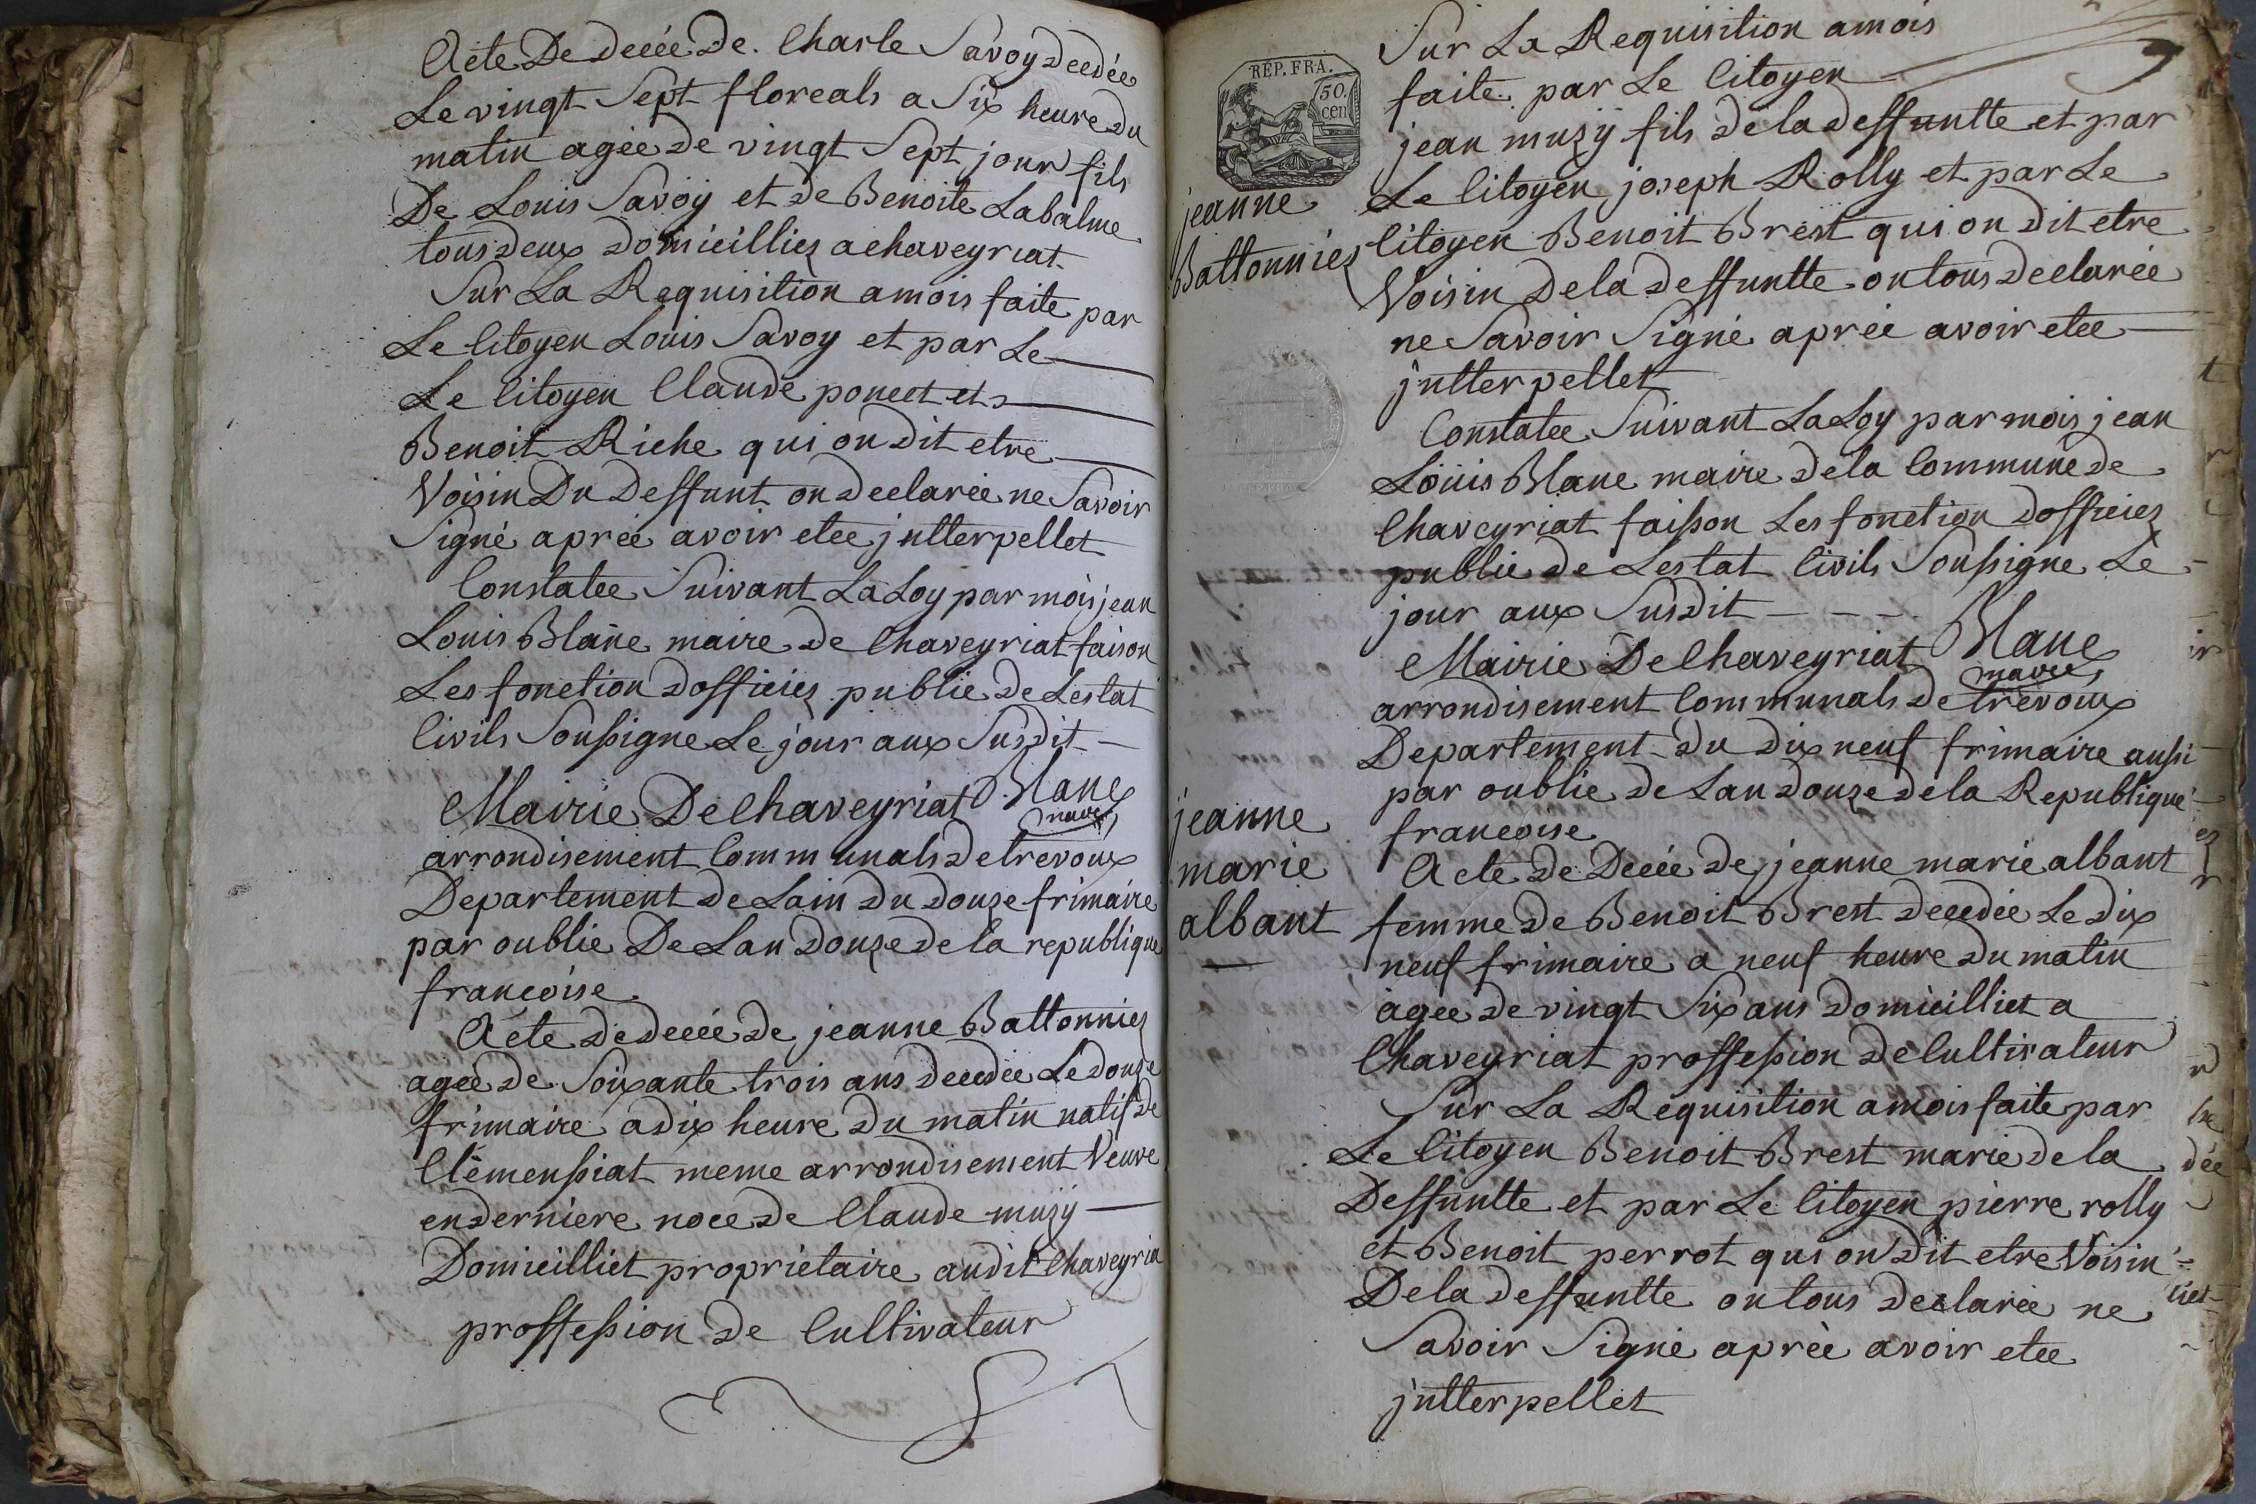 Acte De deceé De. Charle Savoy decedée
Le vingt Sept floreals a Six heure du
matin ageé de vingt Sept jour fils
De Louis Savoÿ et de Benoite Labalme
tous deux domicilliez a chaveyriat
Sur La Requisition a mois faite par
Le Citoyen Louis Savoy et par Le
Le Citoyen Claude poncet et
Benoit Riche qui on dit etre
Voisin Du Deffunt on declareé ne Savoir
Signé apreé avoir etee jntterpellet
Constatee Suivant La Loy par mois jean
Louis Blanc maire de Chaveyriat faison
Les fonction d officiez public de Lestat
Civils Soussigne Le jour aux Susdit
Blanc
maire
Mairie De Chaveyriat
arrondisement Communals de trevoux
Departement de Lain du douze frimaire
par oublie De Lan douze de la republique
francoise
Acte de deceé de jeanne Battonniez
ageé de Soixante trois ans decedeé Le douze
frimaire a dix heure du matin natif de
Clémenssiat meme arrondisement Veuve
en derniere noce de Claude muzÿ
Domicilliet propriétaire audit Chaveyria
proffession de Cultivateur
REP. FRA.
50.
cen
Sur La Requisition a mois
faite par Le Citoyen
jean muzÿ fils de la deffuntte et par
Le Citoyen joseph Rolly et par Le
Citoyen Benoit Brest qui on dit etre
Voisin de la deffuntte on tous declareé
ne Savoir Signé apreé avoir etee
jntterpellet
jeanne
Battonniez
Constatee Suivant La Loy par mois jean
Loüis Blanc maire de la Commune de
Chaveyriat faisson Les fonction d officiez
public de Lestat Civils Soussigne Le
jour aux Susdit
Blanc
maire
Mairie De Chaveyriat
arrondisement Communals de trevoux
Departement du dix neuf frimaire aussi
par oublie de Lan douze de la Republique
francoise
jeanne
marie
albant
Acte de Deceé de jeanne marie albant
femme de Benoit Brest decedeé Le dix
neuf frimaire a neuf heure du matin
agee de vingt Six ans domicilliet a
Chaveyriat proffession de Cultivateur
Sur La Requisition a mois faite par
Le Citoyen Benoit Brest marie de la
Deffuntte et par Le Citoyen pierre rolly
et Benoit perrot qui on dit etre Voisin
De la deffuntte on tous declareé ne
Savoir Signé apreé avoir etee
jntterpellet